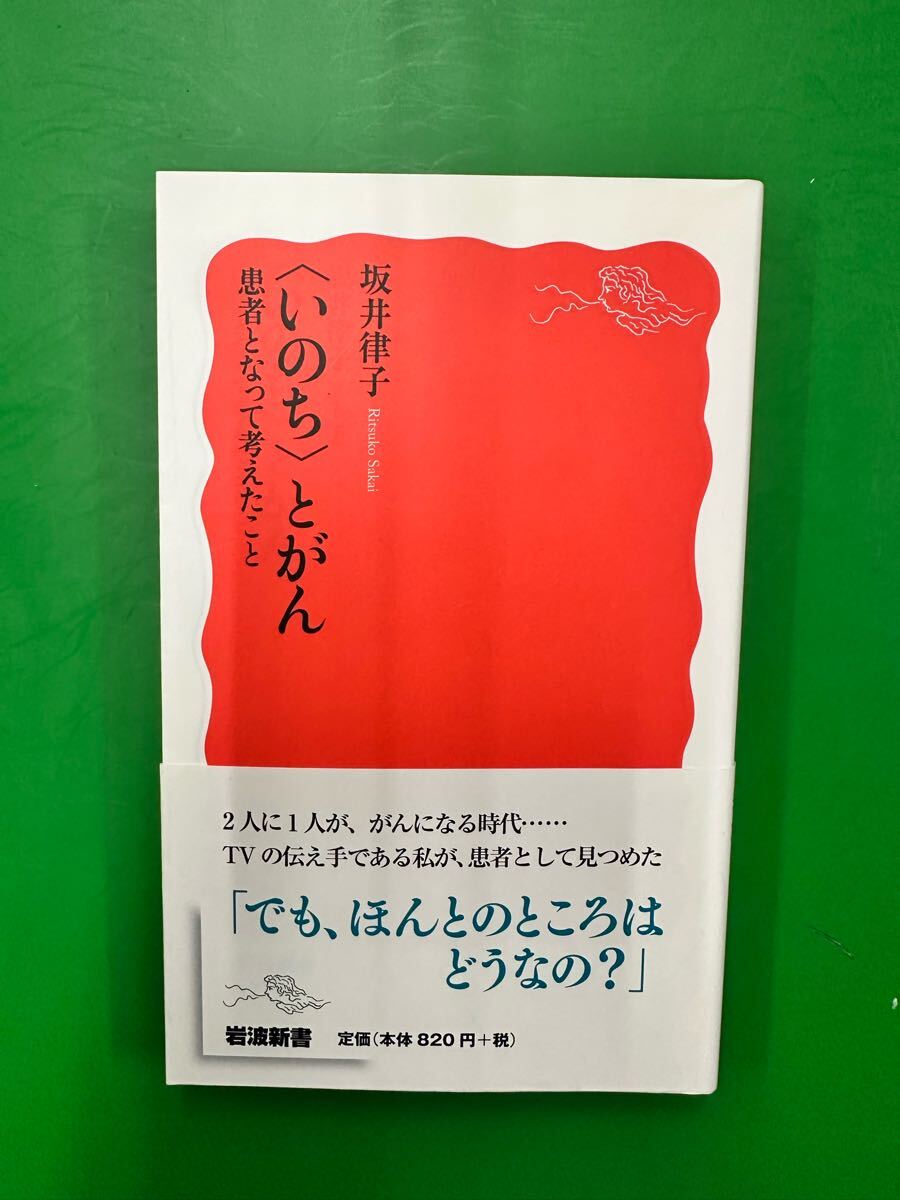 坂井律子 Ritsuko Sakai
〈いのち〉とがん
患者となって考えたこと
2人に1人が、がんになる時代……
TVの伝え手である私が、患者として見つめた
「でも、ほんとのところは
どうなの？」
岩波新書 定価(本体820円+税)